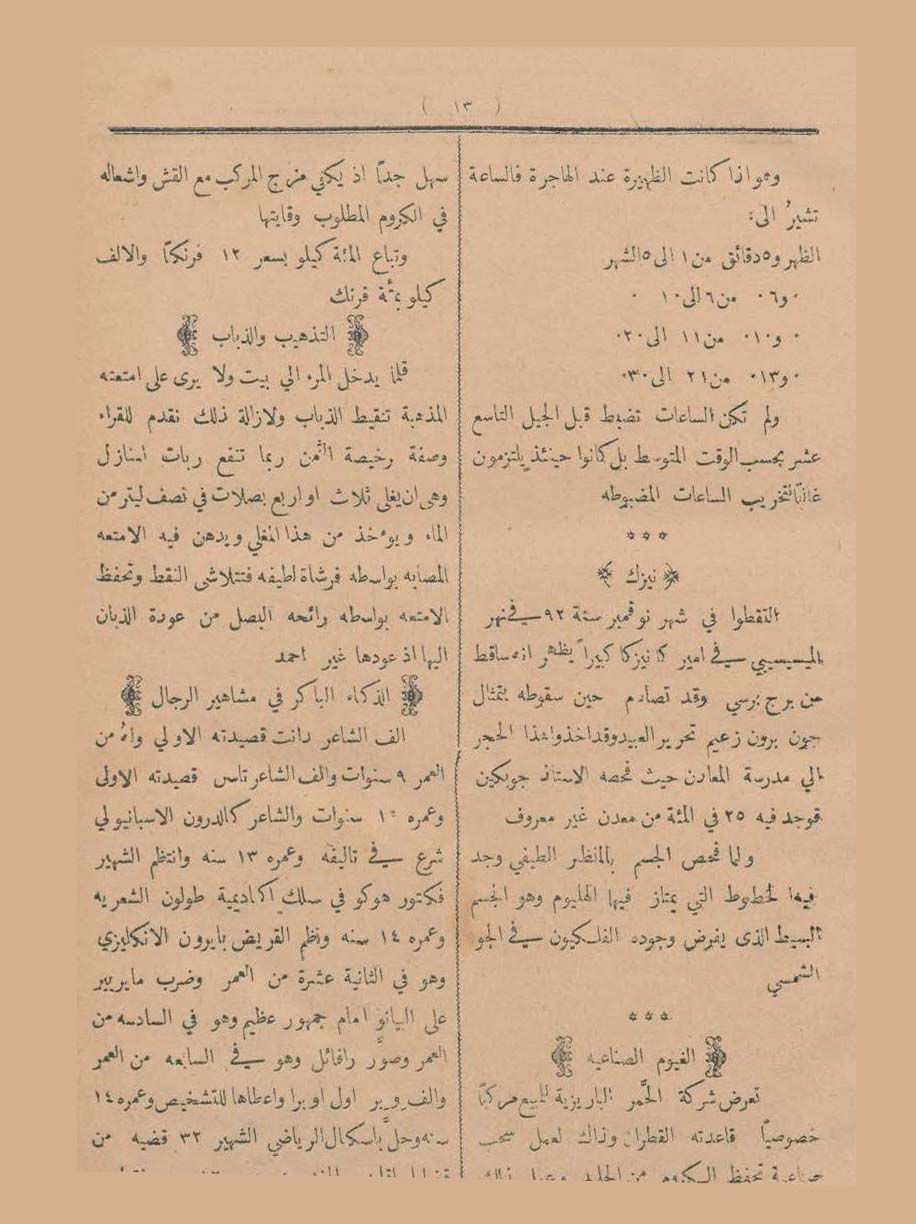 ( ١٣ )
وهو اذا كانت الظهيرة عند الهاجرة فالساعة
تشيرُ الى:
الظهر و٥ دقائق من ١ الى ٥ الشهر
٠ و٠٦ من ٦ الى ١٠ ٠
٠ و٠١٠ من ١١ الى ٢٠٠
٠ و٠١٣ من ٢١ الى ٣٠٠
ولم تكن الساعات تضبط قبل الجيل التاسع
عشر بحسب الوقت المتوسط بل كانوا حينئذ يلتزمون
غالبًا لتخريب الساعات المضبوطه
* * *
﴿ نيزك ﴾
التقطوا في شهر نوفمبر سنة ٩٢ في نهر
الميسيسيبي في اميركا نيزكا كبيراً يظهر انه ساقط
من برج برسي وقد تصادم حين سقوطه بتمثال
جون برون زعيم تحرير العبيد وقد اخذوا هذا الحجر
الي مدرسة المعادن حيث فحصه الاستاذ جوبكين
فوجد فيه ٢٥ في المئة من معدن غير معروف
ولما فحص الجسم بالمنظر الطيفي وجد
فيها الخطوط التي يمتاز فيها الهليوم وهو الجسم
البسيط الذى يفرض وجوده الفلكيون في الجو
الشمسي
* * *
﴿ الغيوم الصناعيه ﴾
تعرض شركة الحُمَّر الباريزية للبيع مركبًا
خصوصياً قاعدته القطران وذلك لعمل سحب
صناعية تحفظ الكروم من الجليد وعمل ذلك
سهل جداً اذ يكفي مزج المركب مع القش واشعاله
في الكروم المطلوب وقايتها
وتباع المئة كيلو بسعر ١٢ فرنكاً والالف
كيلو بمئة فرنك
﴿ التذهيب والذباب ﴾
قلما يدخل المرء الي بيت ولا يرى على امتعته
المذهبة تنقيط الذباب ولازالة ذلك نقدم للقراء
وصفة رخيصة الثمن ربما تنفع ربات المنازل
وهي ان يغلى ثلاث او اربع بصلات في نصف ليتر من
الماء ويوٴخذ من هذا المغلي ويدهن فيه الامتعه
المصابه بواسطه فرشاة لطيفه فتتلاشى النقط وتحفظ
الامتعه بواسطه رائحه البصل من عودة الذبان
اليها اذ عودها غير احمد
﴿ الذكاء الباكر في مشاهير الرجال ﴾
الف الشاعر دانت قصيدته الاولي ولهُ من
العمر ٩ سنوات والف الشاعر تاس قصيدته الاولى
وعمره ١٠ سنوات والشاعر كالدرون الاسبانيولي
شرع في تاليفه وعمره ١٣ سنه وانتظم الشهير
فكتور هوكو في سلك اكاديمية طولون الشعريه
وعمره ١٤ سنه ونظم القريض بايرون الانكليزي
وهو في الثانية عشرة من العمر وضرب مايربير
على البيانو امام جمهور عظيم وهو في السادسه من
العمر وصوَّر رافائل وهو في السابعه من العمر
والف وبر اول اوبرا واعطاها للتشخيص وعمره ١٤
سنه وحلَّ باسكال الرياضي الشهير ٣٢ قضيه من